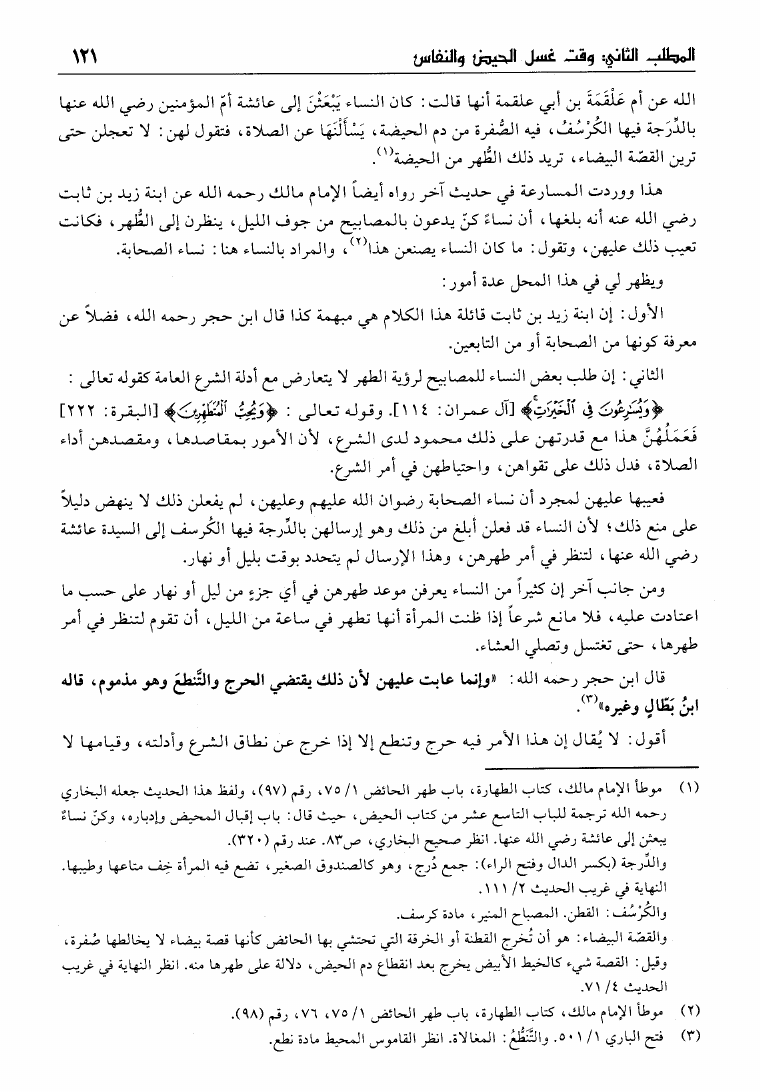 المطلب الثاني: وقت غسل الحيض والنفاس ١٢١
الله عن أم عَلْقَمَةَ بن أبي علقمة أنها قالت: كان النساء يَبْعَثْنَ إلى عائشة أمّ المؤمنين رضي الله عنها
بالدِّرَجة فيها الكُرْسُفُ، فيه الصُّفرة من دم الحيضة، يَسْأَلْنَهَا عن الصلاة، فتقول لهن: لا تعجلن حتى
ترين القصّة البيضاء، تريد ذلك الطُّهر من الحيضة(١).
هذا ووردت المسارعة في حديث آخر رواه أيضاً الإمام مالك رحمه الله عن ابنة زيد بن ثابت
رضي الله عنه أنه بلغها، أن نساءً كنّ يدعون بالمصابيح من جوف الليل، ينظرن إلى الطُّهر، فكانت
تعيب ذلك عليهن، وتقول: ما كان النساء يصنعن هذا(٢)، والمراد بالنساء هنا: نساء الصحابة.
ويظهر لي في هذا المحل عدة أمور:
الأول: إن ابنة زيد بن ثابت قائلة هذا الكلام هي مبهمة كذا قال ابن حجر رحمه الله، فضلاً عن
معرفة كونها من الصحابة أو من التابعين.
الثاني: إن طلب بعض النساء للمصابيح لرؤية الطهر لا يتعارض مع أدلة الشرع العامة كقوله تعالى :
﴿وَيُسَارِعُونَ فِي الْخَيْرَاتِ﴾ [آل عمران: ١١٤]. وقوله تعالى : ﴿وَيُحِبُّ الْمُتَطَهِّرِينَ﴾ [البقرة: ٢٢٢]
فَعَمَلُهُنَّ هذا مع قدرتهن على ذلك محمود لدى الشرع، لأن الأمور بمقاصدها، ومقصدهن أداء
الصلاة، فدل ذلك على تقواهن، واحتياطهن في أمر الشرع.
فعيبها عليهن لمجرد أن نساء الصحابة رضوان الله عليهم وعليهن، لم يفعلن ذلك لا ينهض دليلاً
على منع ذلك؛ لأن النساء قد فعلن أبلغ من ذلك وهو إرسالهن بالدِّرجة فيها الكُرسف إلى السيدة عائشة
رضي الله عنها، لتنظر في أمر طهرهن، وهذا الإرسال لم يتحدد بوقت بليل أو نهار.
ومن جانب آخر إن كثيراً من النساء يعرفن موعد طهرهن في أي جزءٍ من ليل أو نهار على حسب ما
اعتادت عليه، فلا مانع شرعاً إذا ظنت المرأة أنها تطهر في ساعة من الليل، أن تقوم لتنظر في أمر
طهرها، حتى تغتسل وتصلي العشاء.
قال ابن حجر رحمه الله: «وإنما عابت عليهن لأن ذلك يقتضي الحرج والتَّنطعَ وهو مذموم، قاله
ابنُ بَطّالٍ وغيره»(٣).
أقول: لا يُقال إن هذا الأمر فيه حرج وتنطع إلا إذا خرج عن نطاق الشرع وأدلته، وقيامها لا
(١) موطأ الإمام مالك، كتاب الطهارة، باب طهر الحائض ١/ ٧٥، رقم (٩٧)، ولفظ هذا الحديث جعله البخاري
رحمه الله ترجمة للباب التاسع عشر من كتاب الحيض، حيث قال: باب إقبال المحيض وإدباره، وكنّ نساءٌ
يبعثن إلى عائشة رضي الله عنها. انظر صحيح البخاري، ص٨٣. عند رقم (٣٢٠).
والدِّرجة (بكسر الدال وفتح الراء): جمع دُرج، وهو كالصندوق الصغير، تضع فيه المرأة خِف متاعها وطيبها.
النهاية في غريب الحديث ٢/ ١١١.
والكُرْسُف: القطن. المصباح المنير، مادة كرسف.
والقصّة البيضاء: هو أن تُخرج القطنة أو الخرقة التي تحتشي بها الحائض كأنها قصة بيضاء لا يخالطها صُفرة،
وقيل: القصة شيء كالخيط الأبيض يخرج بعد انقطاع دم الحيض، دلالة على طهرها منه. انظر النهاية في غريب
الحديث ٤/ ٧١.
(٢) موطأ الإمام مالك، كتاب الطهارة، باب طهر الحائض ١/ ٧٥، ٧٦، رقم (٩٨).
(٣) فتح الباري ١/ ٥٠١. والتَّنَطُّعُ: المغالاة. انظر القاموس المحيط مادة نطع.